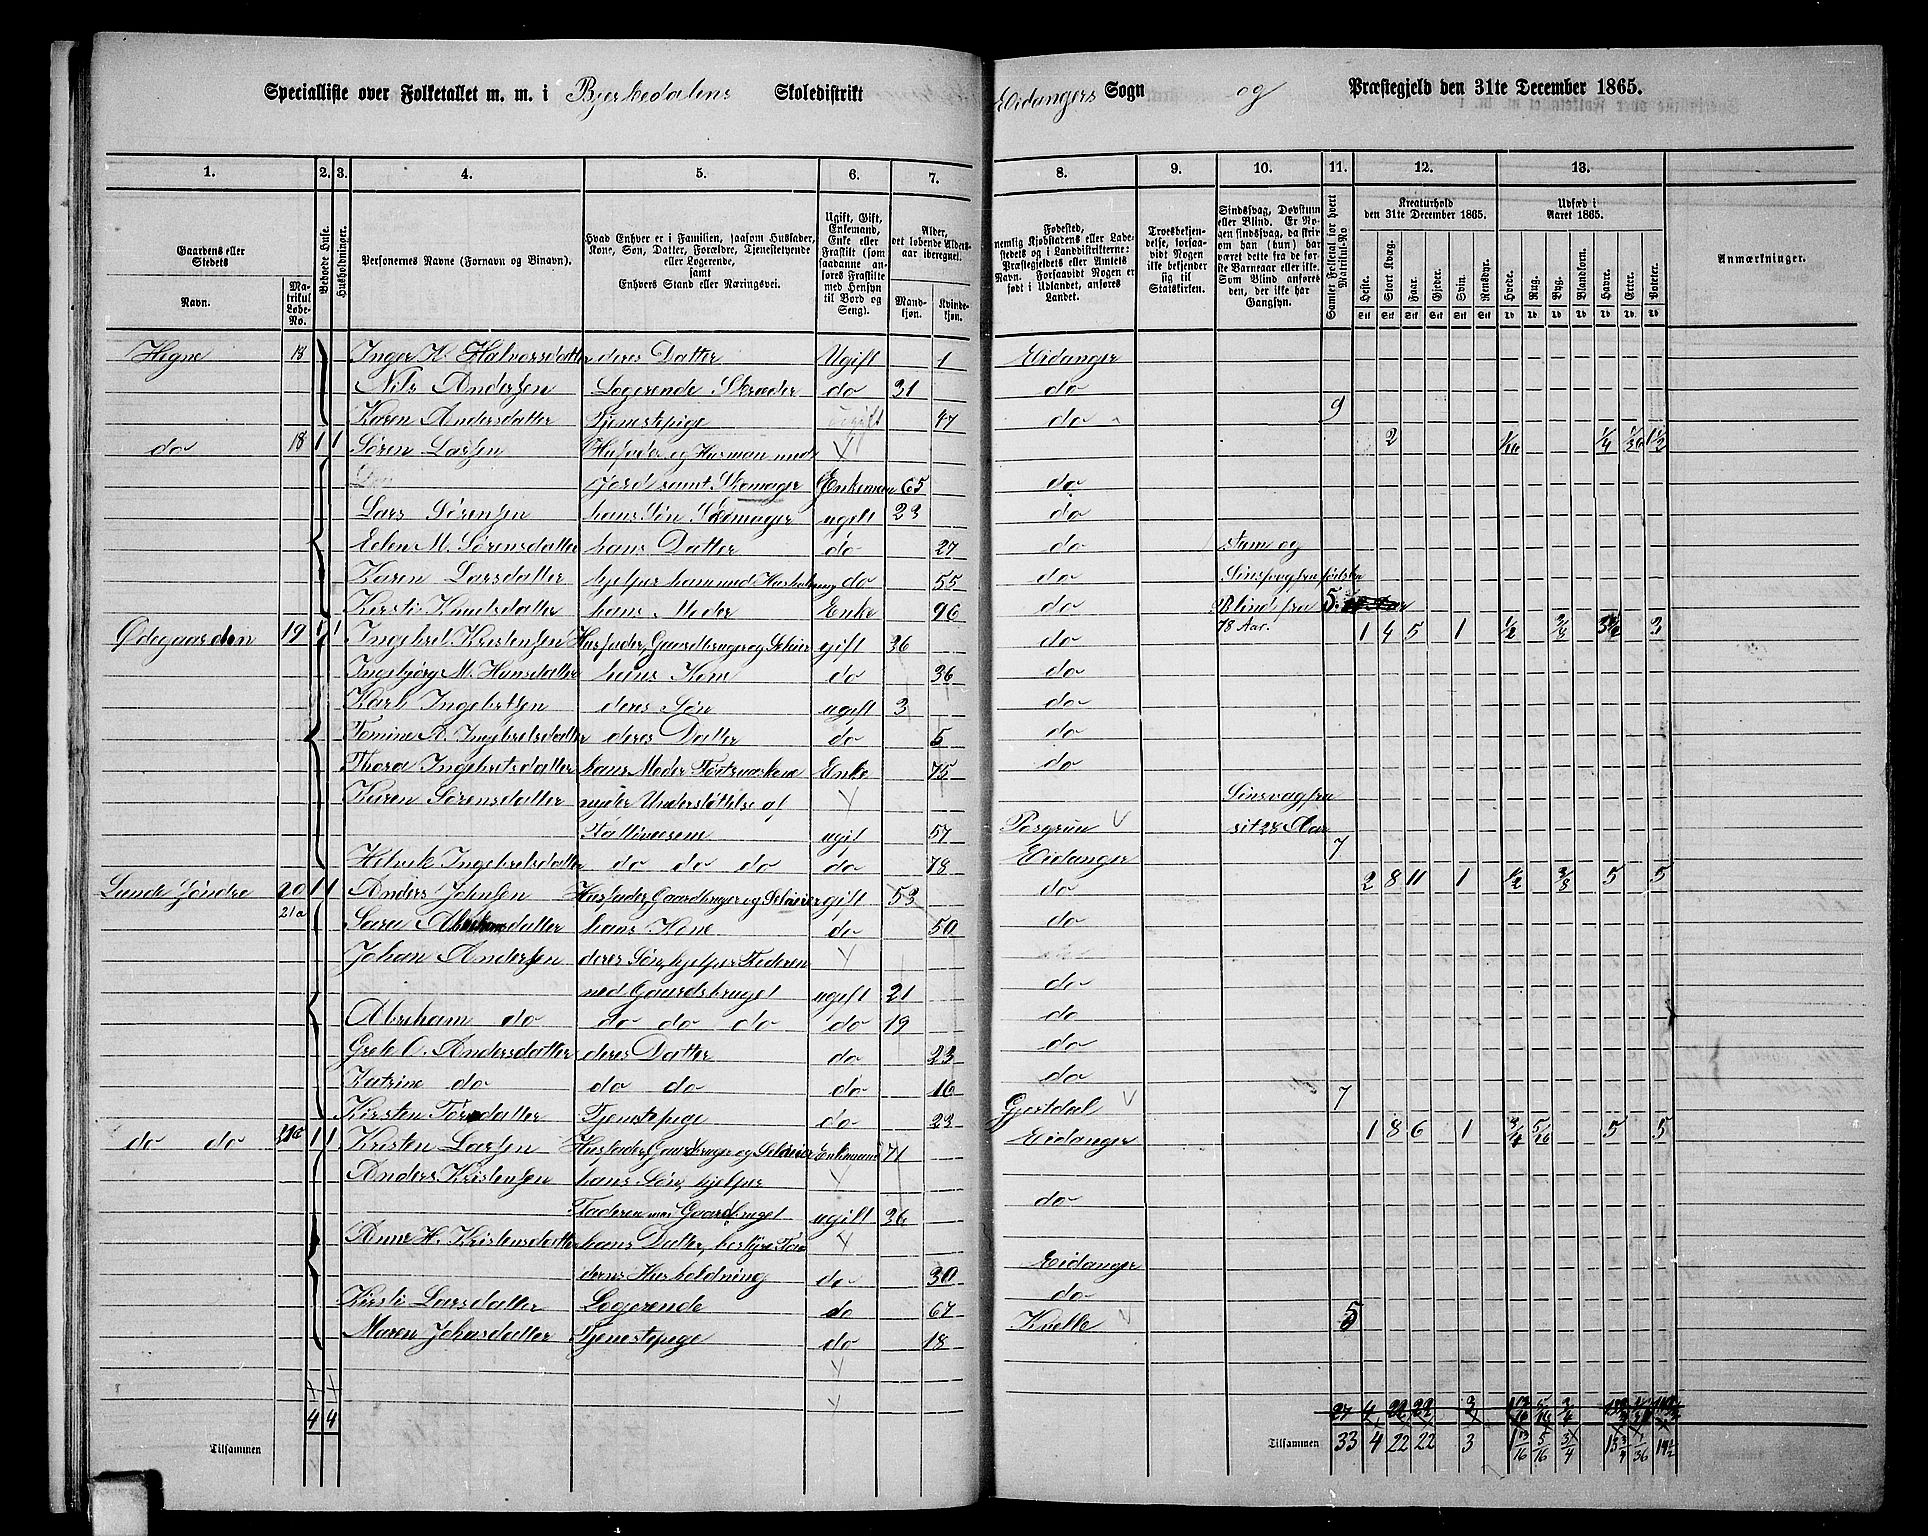 Specialliste over Folketallet m. m. i Bjerkedalens Skoledistrikt Eidangers Sogn og Præstegjeld den 31te December 1865.
1. 2. 3. 4. 5. 6. 7. 8. 9. 10. 11. 12. 13.
Gaardens eller Stedets
Navn. Matrikul Løbe-No.
Beboede Huse.
Husholdninger.
Personernes Navne (Fornavn og Binavn).
Hvad Enhver er i Familien, saasom Husfader, Kone, Søn, Datter, Forældre, Tjenestetyende eller Logerende, samt Enhvers Stand eller Næringsvei.
Ugift, Gift, Enkemand, Enke eller Fraskilt (som saadanne anføres Fraskilte med Hensyn til Bord og Seng).
Alder, det løbende Aldersaar iberegnet.
Mandkjøn. Kvindekjøn.
Fødested, nemlig Kjøbstadens eller Ladestedets og i Landdistrikterne: Præstegjeldets eller Amtets Navn. Forsaavidt Nogen er født i Udlandet, anføres Landet.
Troesbekjendelse, forsaavidt Nogen ikke bekjender sig til Statskirken.
Sindssvag, Døvstum eller Blind. Er Nogen sindssvag, da skrives om han (hun) har været dette fra de første Barneaar eller ikke. Som Blind anføres den, der ikke har Gangsyn.
Samlet Folketal for hvert Matrikul-No
Kreaturhold den 31te December 1865.
Heste. Stort Kvæg. Faar. Gjeder. Svin. Rensdyr.
Udsæd i Aaret 1865.
Hvede. Rug. Byg. Blandkorn. Havre. Erter. Poteter.
Anmærkninger.
Hegne 18 Inger H. Halvorsdatter deres Datter Ugift 1 Eidanger
Nils Andersen Logerende Skræder do 31 do
Karen Andersdatter Tjenestepige ugift 47 do 9
do 18 1 1 Søren Larsen Husfader og Husman med 2 1/16 1/4 1/36 1 1/2
Jord samt Skomager Enkeman 65 do
Lars Sørensen hans Søn Skomager ugift 23 do
Eden M. Sørensdatter hans Datter do 27 do Stum og
Karen Larsdatter hjelper ham med Husholdning do 55 do Sinsvag fra fødslen
Kirsti Knutsdatter hans Moder Enke 96 do Blind fra 5
Ødegaarden 19 1 1 Ingebret Kristensen Husfader, Gaardbruger og Seleier gift 36 do 78 Aar. 1 4 5 1 1/2 3/8 3 1/2 3
Ingebjørg M. Hansdatter hans Kone do 36 do
Karl Ingebretsen deres Søn ugift 3 do
Tomine A. Ingebretsdatter deres Datter do 5 do
Thora Ingebretsdatter hans Moder Enke 75 do
Karen Sørensdatter nyder Understøttelse af Sinsvag fra
Fattivæsene ugif 57 Porgrun sit 28 Aar
Helvik Ingebretsdatter do do do do 78 Eidanger 7
Lunde Søndre 20 1 1 Anders Johnsen Husfader Gaardbruger og Seleier gift 53 do 2 8 11 1 1/2 3/8 5 5
21a Sara Abrahamsdatter hans Kone do 50 do
Johan Andersen deres Søn, hjelper Faderen
med Gaardsbruget ugift 21 do
Abraham do do do do do 19 do
Grete O. Andersdatter deres Datter do 23 do
Katrine do do do do 16 do
Kirsten Torsdatter Tjenestepige do 23 Gjerstdal 7
do do 21a 1 1 Kristen Larsen Husfader Gaardbruger og Seleier Enkemand 71 Eidanger 1 8 6 1 3/4 5/16 5 5
Anders Kristensen hans Søn, hjelper
Faderen med Gaardbruget ugift 36 do
Anne H. Kristensdatter hans Datter, bestyre Fa
derns Husholdning do 30 Eidanger
Kirsti Larsdatter Logerende do 67 do
Maren Johasdatter Tjenestepige do 18 Kvelle 5
4 4
Tilsammen Tilsammen 33 4 22 22 3 1 13/16 5/16 3/4 13 3/4 1/36 14 1/2